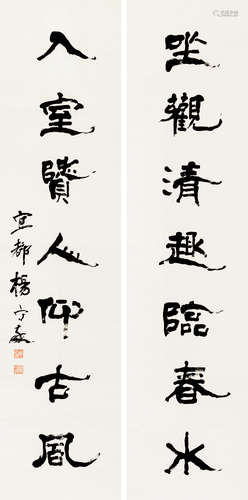 坐觀清趣臨春水
入室賢人仰古風
宜都楊守敬